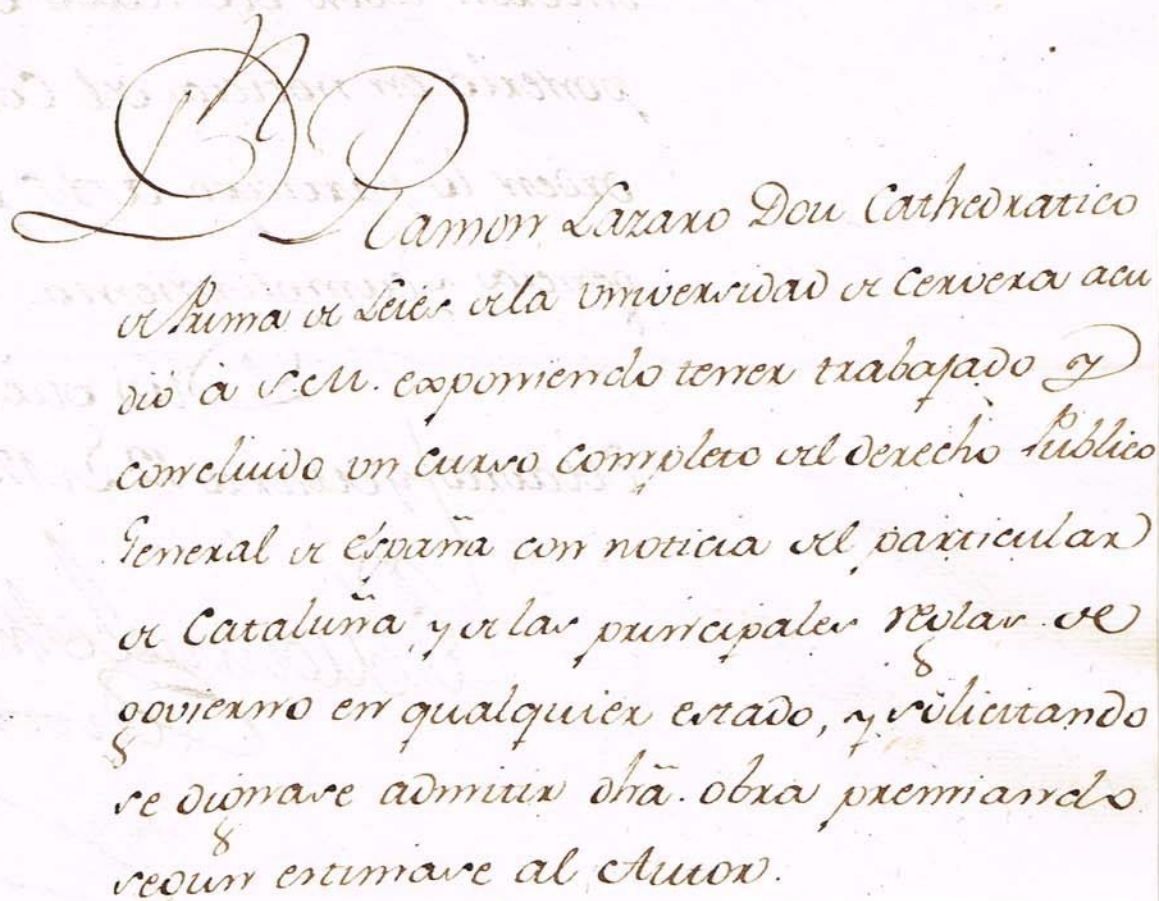 Dn Ramon Lazaro Dou Cathedratico
de Prima de Leies dela Universidad de Cervera acu
dió à S.M. exponiendo tener trabajado y
concluido un curso completo del derecho Público
General de España con noticia del particular
de Cataluña y de las principales reglas de
govierno en qualquier estado, y solicitando
se dignase admitir dha. obra premiando
segun estimase al Autor.